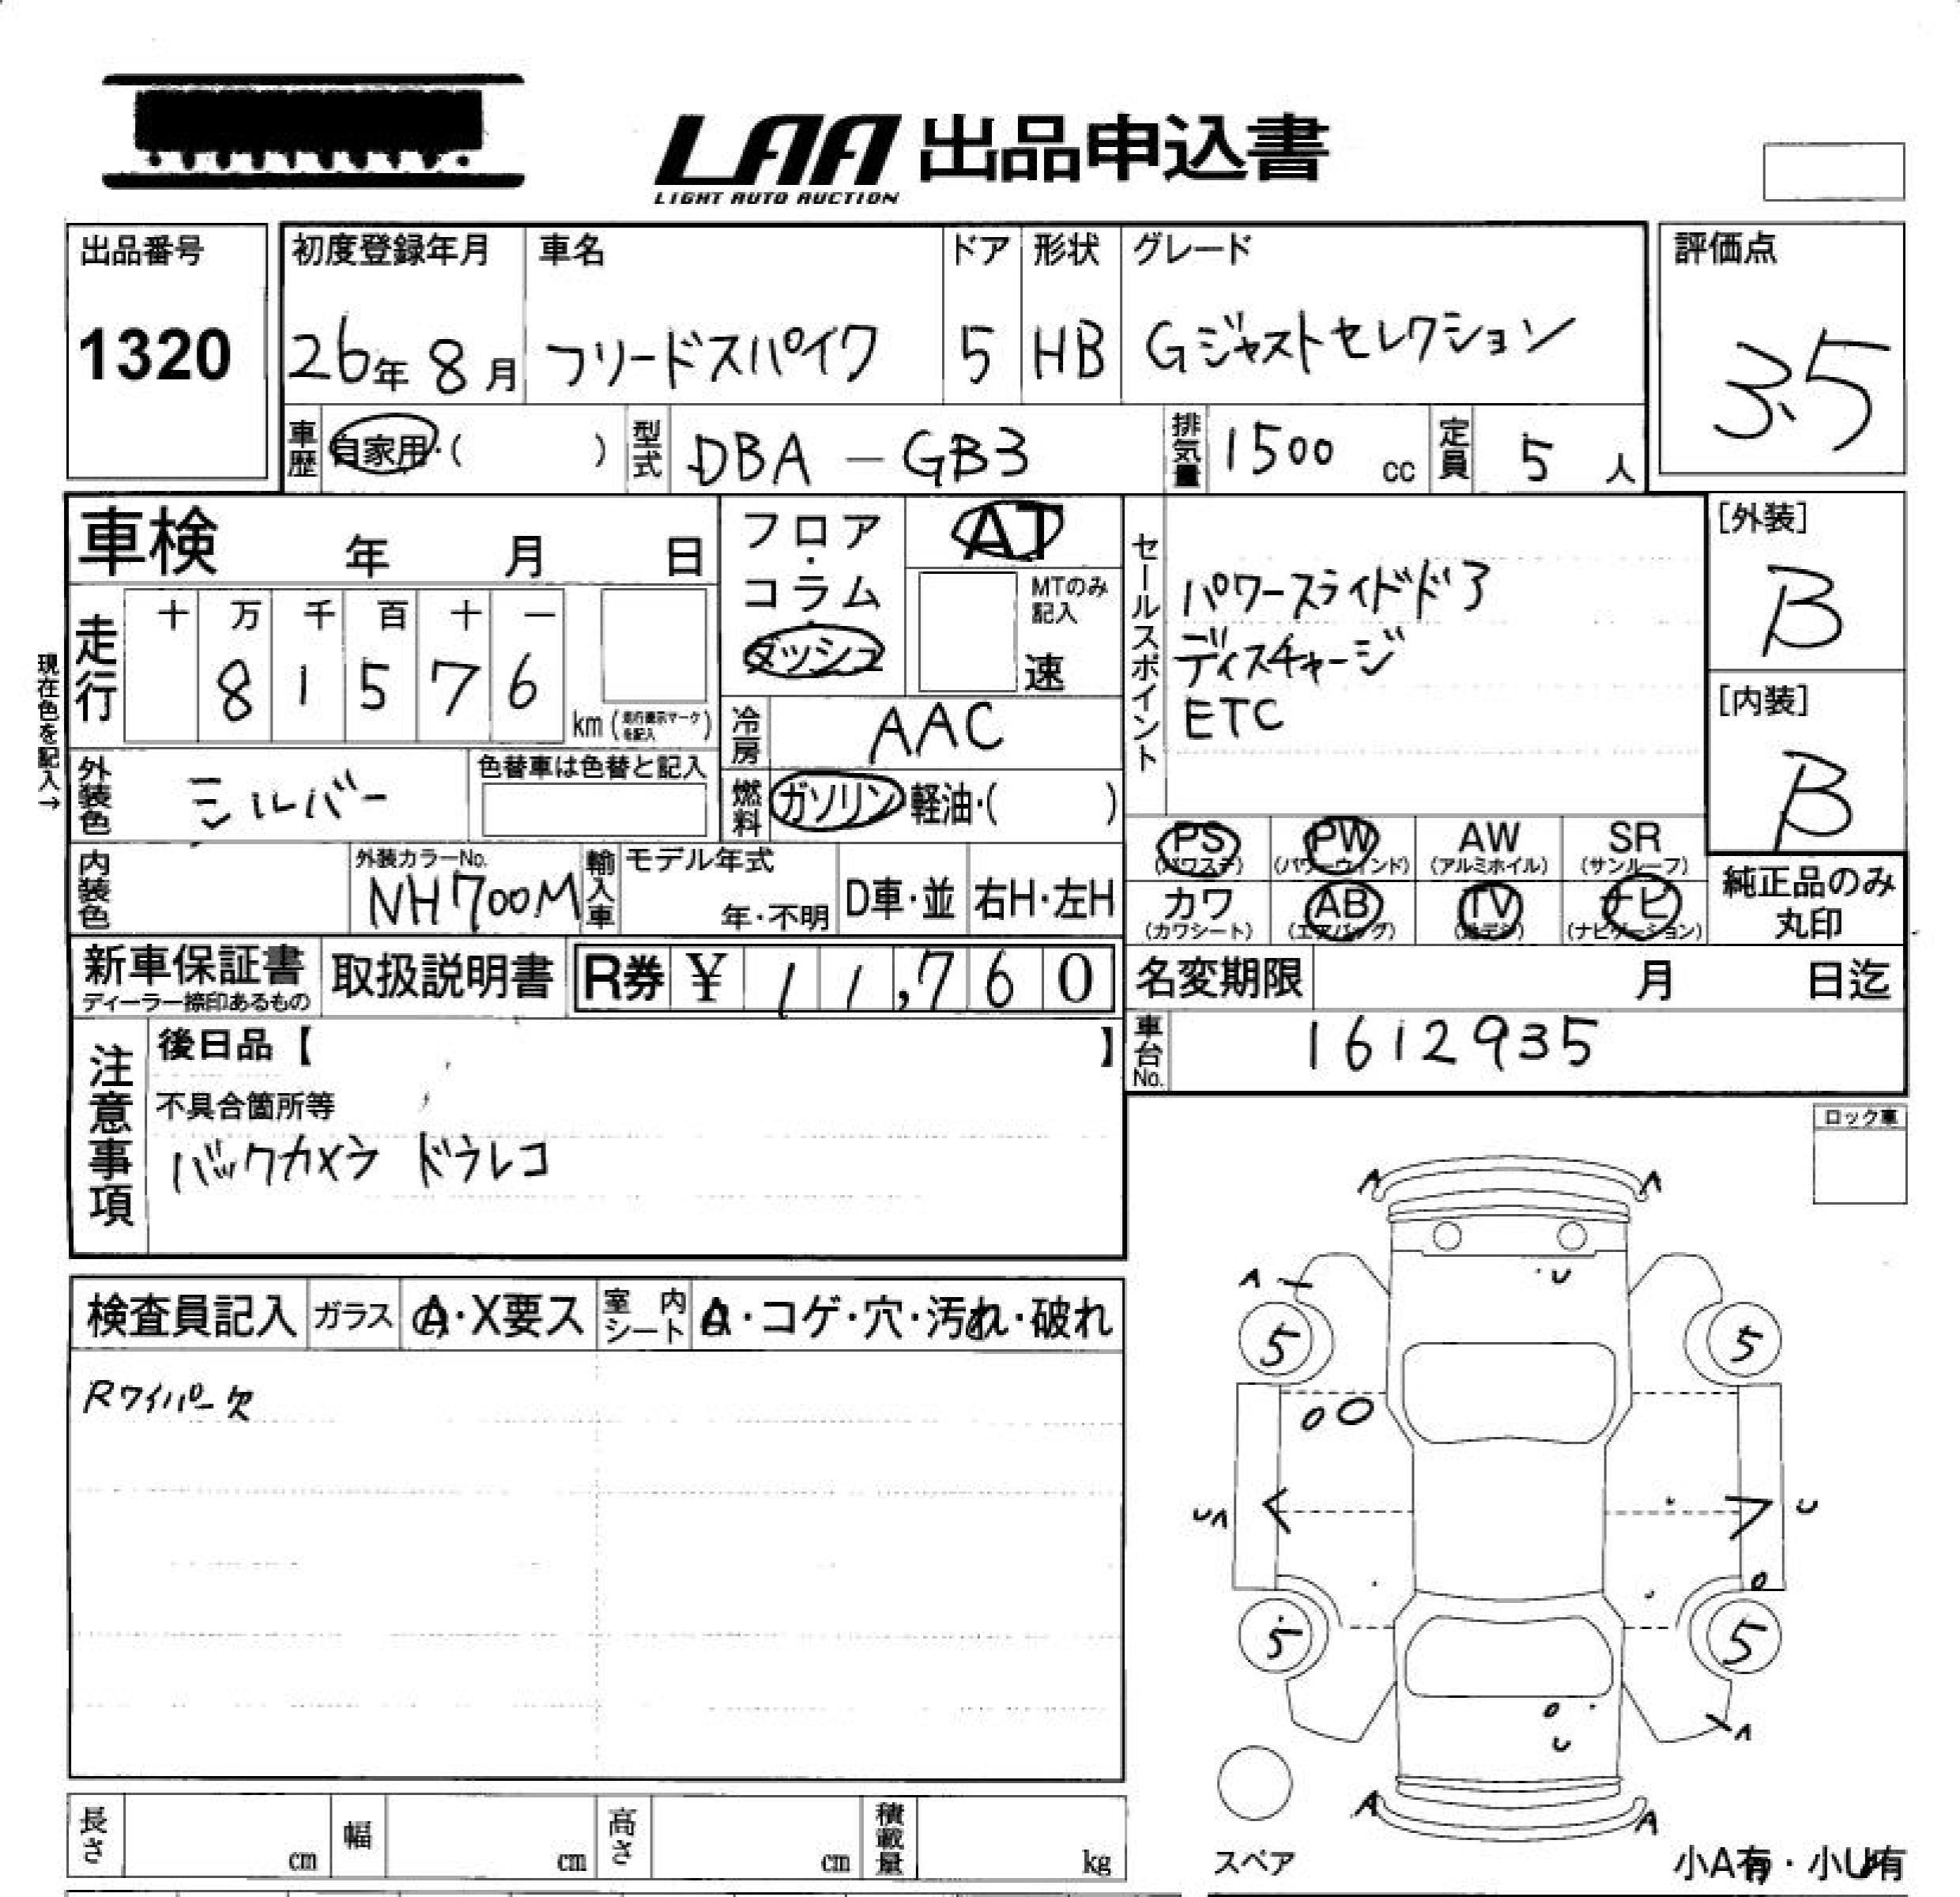 LAA 出品申込書
LIGHT AUTO AUCTION
出品番号 初度登録年月 車名 ドア 形状 グレード 評価点
1320 26年 8月 フリードスパイク 5 HB Gジャストセレクション 3.5
車歴 自家用・( ) 型式 DBA - GB3 排気量 1500 cc 定員 5 人
車検 年 月 日 フロア・コラム・ダッシュ AT セールスポイント [外装]
MTのみ記入 速 B
パワースライドドア
ディスチャージ
ETC
現在色を記入→
走行 十 万 千 百 十 一
8 1 5 7 6 km (走行表示マークを記入)
[内装]
B
冷房 AAC
外装色 シルバー 色替車は色替と記入 燃料 ガソリン 軽油・( )
PS (パワステ) PW (パワーウィンド) AW (アルミホイル) SR (サンルーフ)
内装色 外装カラーNo. NH700M 輸入車 モデル年式 年・不明 D車・並 右H・左H
カワ (カワシート) AB (エアバッグ) TV (地デジ) ナビ (ナビゲーション) 純正品のみ丸印
新車保証書 ディーラー捺印あるもの 取扱説明書 R券 ¥ 11,760 名変期限 月 日迄
注意事項 後日品【 】 車台No. 1612935
不具合箇所等
バックカメラ ドラレコ
ロック車
検査員記入 ガラス A・X要ス 室内シート A・コゲ・穴・汚れ・破れ
Rワイパー欠
A A
U
A
5 5
UA U
5 5
U
A
A A
長さ cm 幅 cm 高さ cm 積載量 kg スペア 小A有・小U有